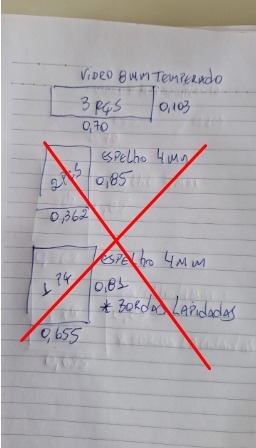 VIDRO 8MM TEMPERADO
3 PÇS 0,103
0,70
ESPELHO 4MM
2 PÇS 0,85
0,362
ESPELHO 4MM
1 PÇ 0,81
* BORDAS LAPIDADAS
0,655